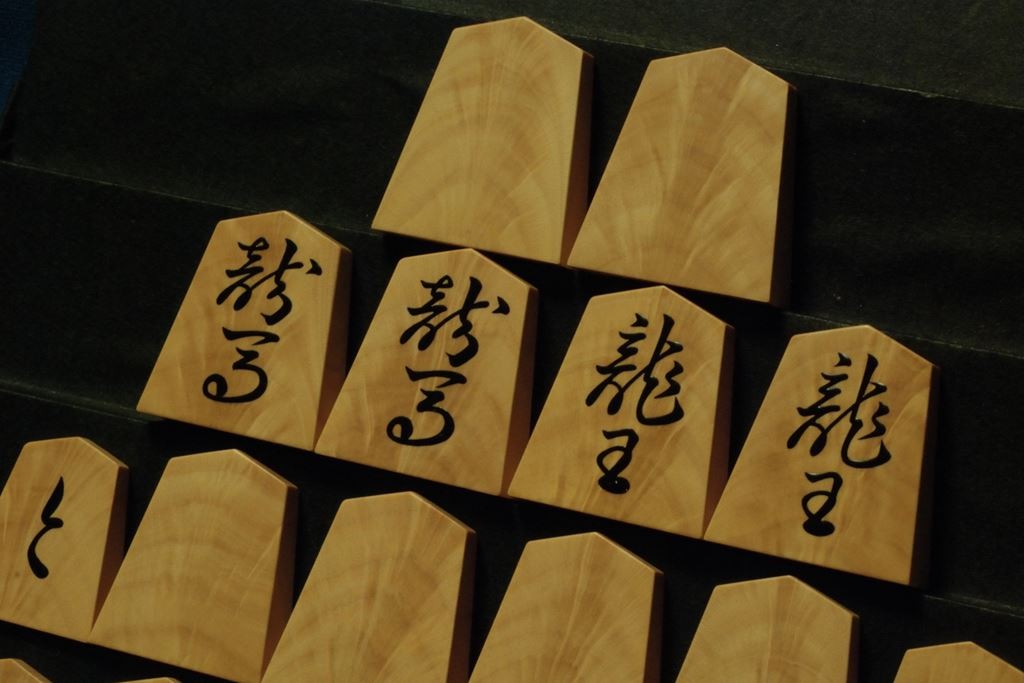 龍馬
龍馬
龍王
龍王
と